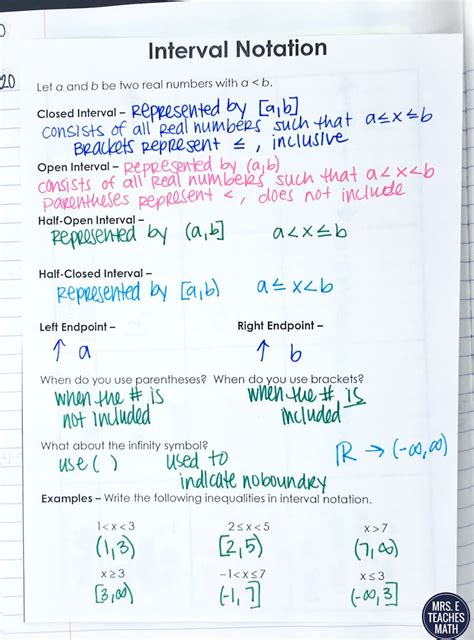 Interval Notation
20
Let a and b be two real numbers with a < b.
Closed Interval – Represented by [a,b]
consists of all real numbers such that a≤x≤b
Brackets represent ≤, inclusive
Open Interval – Represented by (a,b)
consists of all real numbers such that a<x<b
parentheses represent <, does not include
Half-Open Interval –
Represented by (a,b] a<x≤b
Half-Closed Interval –
Represented by [a,b) a≤x<b
Left Endpoint – Right Endpoint –
↑ a ↑ b
When do you use parentheses? When do you use brackets?
when the # is when the # is
not included included
What about the infinity symbol?
use ( ) used to ℝ → (-∞,∞)
indicate no boundry
Examples – Write the following inequalities in interval notation.
1<x<3 2≤x<5 x>7
(1,3) [2,5) (7,∞)
x≥3 -1<x≤7 x≤3
[3,∞) (-1,7] (-∞,3]
MRS. E
TEACHES
MATH